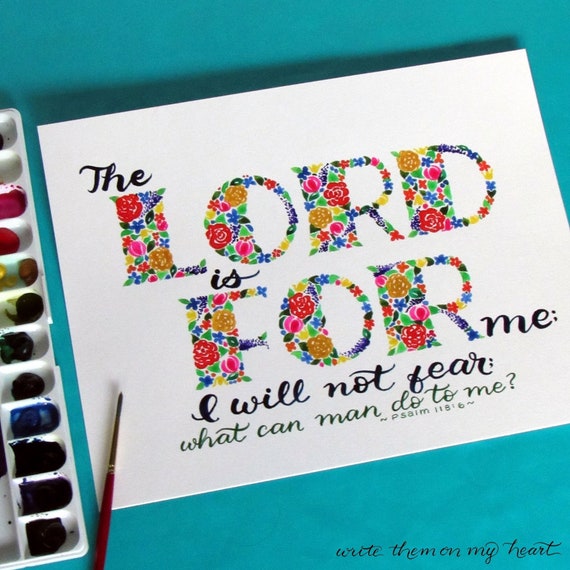 The
LORD
is
FOR me;
I will not fear;
what can man do to me?
~ Psalm 118:6 ~
write them on my heart